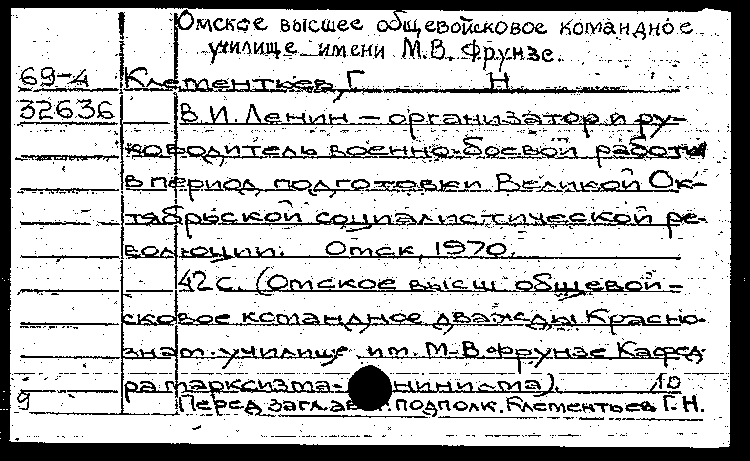 Омское высшее общевойсковое командное
училище имени М.В. Фрунзе.
69-4 Клементьев, Г. Н.
32636 В.И. Ленин – организатор и ру-
ководитель военно-боевой работы
в период подготовки Великой Ок-
тябрьской социалистической ре-
волюции. Омск, 1970.
42 с. (Омское высш. общевой-
сковое командное дважды Красно-
знам. училище им. М.В. Фрунзе Кафед-
ра марксизма- нинизма). 10
9 Перед загл. авт. подполк. Клементьев Г.Н.